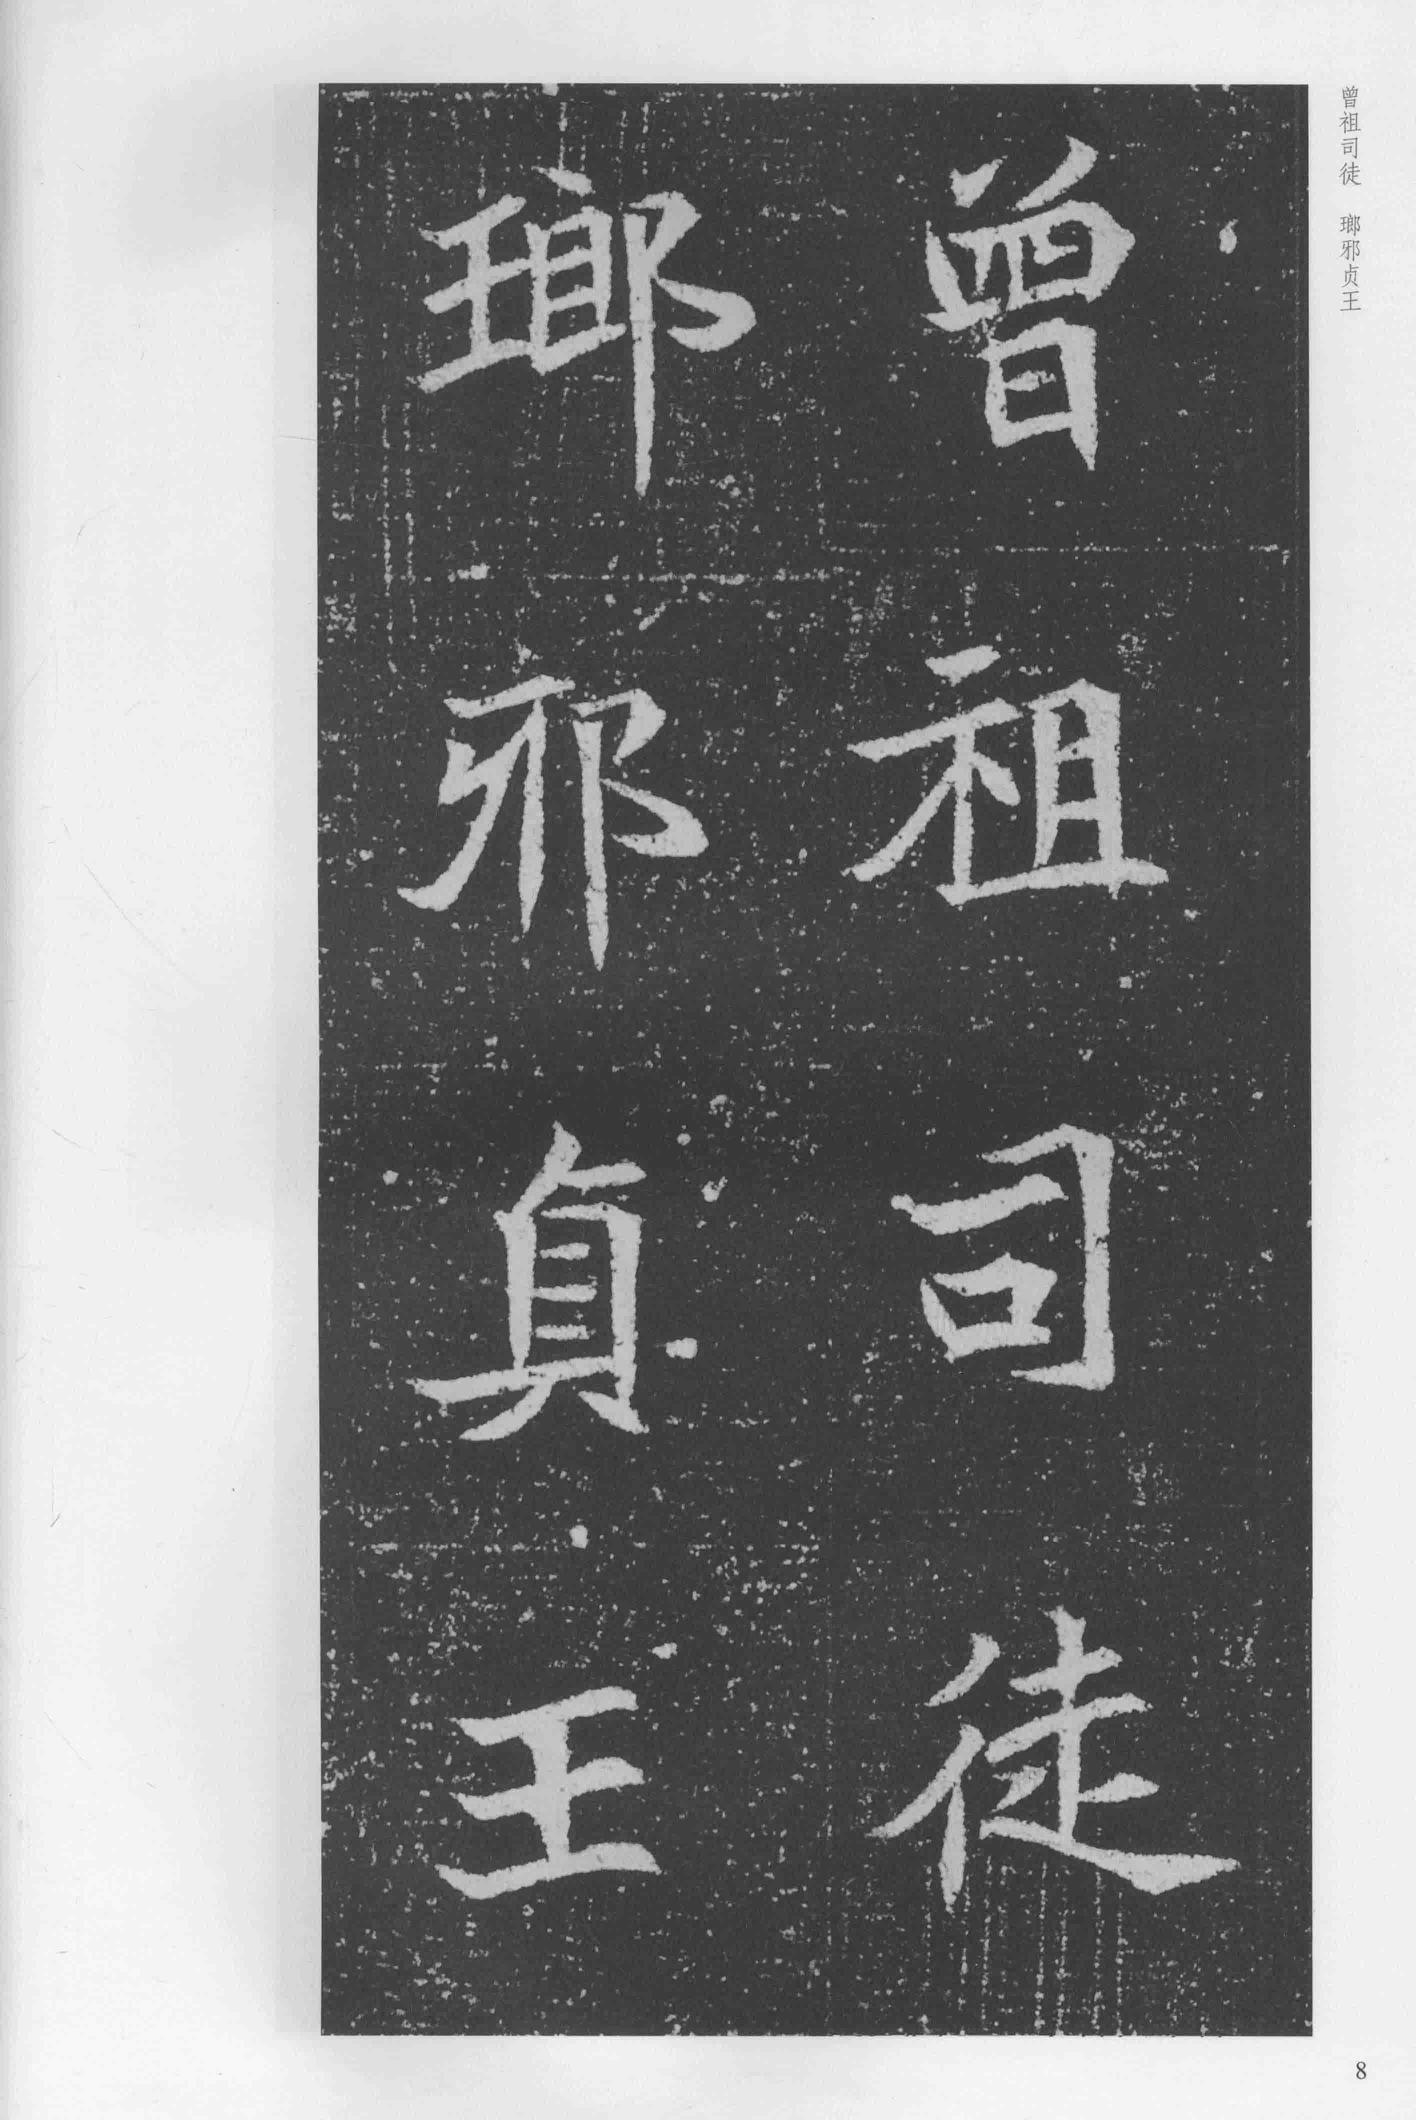 曾祖司徒
瑯邪貞王
曾祖司徒 瑯邪贞王
8